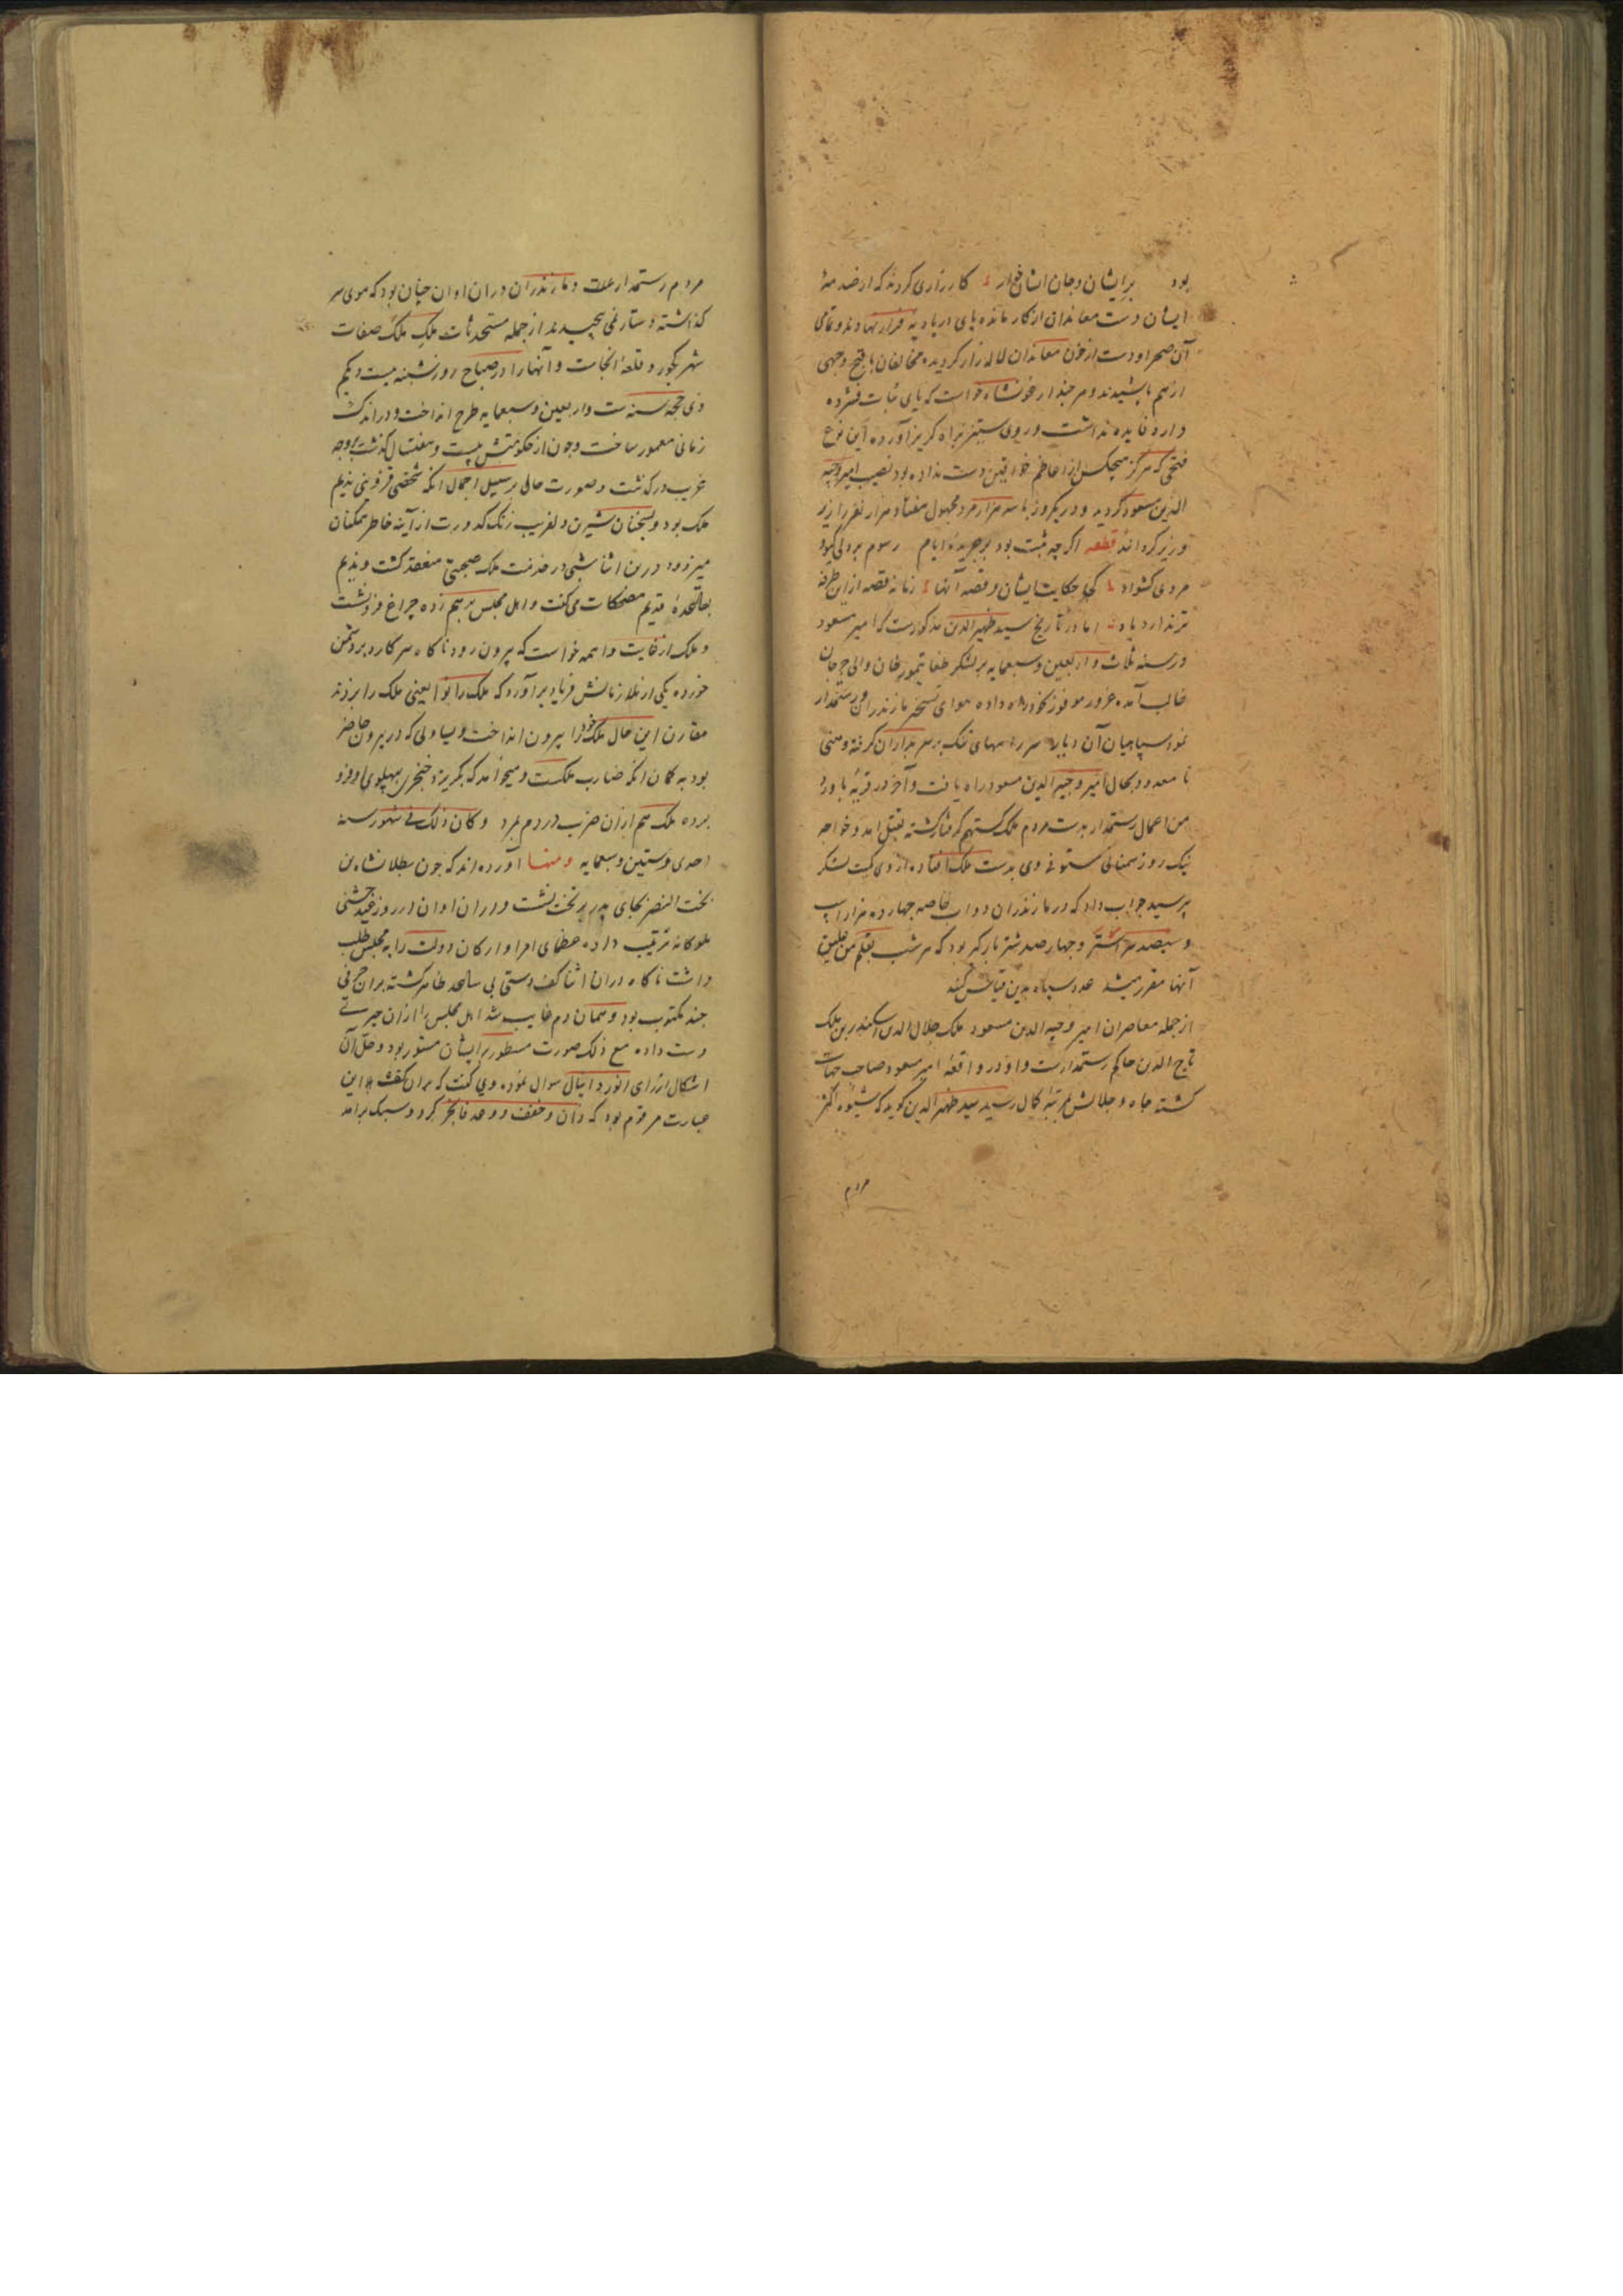 بود برایشان وجان ایشان خوار کارزاری کردند که از صدمهٔ
ایشان دست معاندان از کار مانده پای در بادیه فرار نهادند و تمامی
آن صحرا و دست از خون معاندان لاله زار کردیده مخالفان باقبح وجهی
از هم پاشیدند و هر چند ارغونشاه خواست که پای ثبات فشرده
دارد فایده نداشت و روی ستیز براه کریز آورده این نوع
فتحی که هرکز هیچکس را از اعاظم خواقین دست نداده بود نصیب امیر وجیه
الدین مسعود کردید و در یکروز با سه هزار مرد مجهول هفتاد هزار نفر را زیر
و زبر کرد قطعه اکر چه ثبت بود بر جریدهٔ ایام رسوم پردلی کیو و
مردی کشواد کجا حکایت ایشان و قصه آنها زمانه قصه ازین طرفه
تر ندارد یاد اما در تاریخ سید ظهیر الدین مذکورست که امیر مسعود
در سنه ثلاث و اربعین و سبعمایه بر لشکر طغا تیمور خان والی جرجان
غالب آمده غرور موفور بخود راه داده هوای تسخیر مازندران و رستمدار
نمود سپاهیان آن دیار سر راههای تنک بر سر بداران کرفته وهنی
نا معدود بحال امیر وجیه الدین مسعود راه یافت و آخر در قریهٔ یاورد
من اعمال رستمدار بدست مردم ملک کستهم کرفتار کشته بقتل آمد و خواجه
نیک روز سمنانی مستوفی وی بدست ملک افتاده از وی کمیت لشکر
پرسید جواب داد که در مازندران دواب خاصه چهارده هزار اسب
و سیصد سر استر و چهارصد شتر بارکیر بود که هر شب بقلم من علیق
آنها مقرر میشد عدد سپاه بدین قیاس کنند
از جمله معاصران امیر وجیه الدین مسعود ملک جلال الدین اسکندر بن ملک
تاج الدین حاکم رستمدارست و او در واقعهٔ امیر مسعود صاحب جهات
کشته جاه و جلالش بمرتبهٔ کمال رسید سید ظهیر الدین کوید که شیوه اکثر
مردم
مردم رستمدار و مازندران در ان اوان چنان بود که موی سر
کذاشته دستار نمی پیچیدند از جمله مستحدثات ملک ملک صفات
شهر کجور و قلعهٔ انجاست و آنها را در صباح روز شنبه بیست و یکم
ذی حجه سنه ست و اربعین و سبعمایه طرح انداخت و در اندک
زمانی معمور ساخت و چون از حکومتش بیست و هفت سال کذشت بر وجه
غریب درکذشت و صورت حال بر سبیل اجمال انکه شخصی قزوینی ندیم
ملک بود و بسخنان شیرین دلفریب زنک کدورت از آینه خاطر همکنان
میزدود درین اثنا شبی در خدمت ملک صحبتی منعقد کشت و ندیم
بقاعدهٔ قدیم مضحکات می کفت و اهل مجلس برهم زده چراغ فرو نشست
و ملک از غایت واهمه خواست که بیرون رود ناکاه سر کارد بر دستش
خورده یکی از ملازمانش فریاد برآورد که ملک را بژو یعنی ملک را بزدند
مقارن این حال ملک خود را بیرون انداخت و یساولی که در بیرون حاضر
بود به کمان انکه ضارب ملکست و میخواهد که بکریزد خنجری بپهلوی او فرو
برده ملک هم از ان ضرب در دم بمرد و کان ذلک فی شهور سنه
احدی و ستین و سبعمایه و منها آورده اند که چون بطلاشاه بن
بخت النصر بجای پدر بر تخت نشست و در ان اوان در روز عید جشنی
ملوکانه ترتیب داده عظمای امرا و ارکان دولت را به مجلس طلب
داشت ناکاه در ان اثنا کف دستی بی ساعد ظاهر کشته بران حرفی
چند مکتوب بود و همان دم غایب شد اهل مجلس را از ان حیرتی
دست داده مع ذلک صورت مسطور بر ایشان مستور بود و حل آن
اشکال از رای انور دانیال سوال نموده وی کفت که بران کف دست این
عبارت مرقوم بود که وزن و خفف و وعد فانجز کرد و سبک برآمد